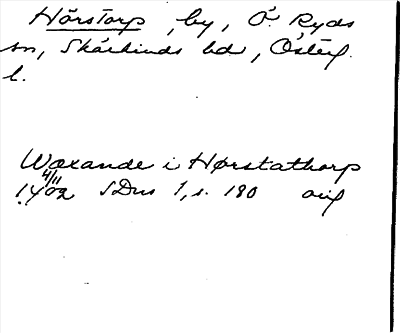 Hörstorp, by, Ö. Ryds
sn, Skärkinds hd, Österg.
l.
Woxande i Hørstathorp
4/11
1402 SDns 1, s. 180 orig